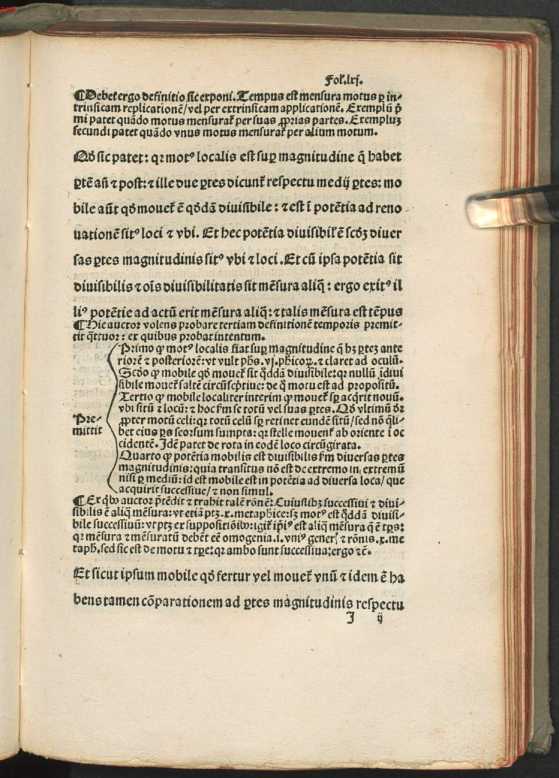 Fol. lxj.
¶ Debet ergo definitio sic exponi. Tempus est mensura motus ꝑ in-
trinsicam replicationē/ vel per extrinsicam applicationē. Exemplū p̄
mi patet quādo motus mensuraꝉ per suas ꝓprias partes. Exemplū
secundi patet quādo vnus motus mensuraꝉ per alium motum.
Qd̄ sic patet: qꝛ motꝰ localis est suꝑ magnitudine q̄ habet
ꝑtē añ & post: & ille due ꝑtes dicunꝉ respectu medij ꝑtes: mo
bile aūt qd̄ moueꝉ ē qd̄dā diuisibile: & est ī potētia ad reno
uationē sitꝰ loci & vbi. Et hec potētia diuisibiľ ē scd̄ꝫ diuer
sas ꝑtes magnitudinis sitꝰ vbi & loci. Et cū ipsa potētia sit
diuisibilis & oīs diuisibilitatis sit mēsura aliq̄: ergo exitꝰ il
liꝰ potētie ad actū erit mēsura aliq̄: & talis mēsura est tēpus
¶ Hic auctor volens probare tertiam definitionē temporis premit-
tit q̄ttuor: ex quibus probat intentum.
Primo ꝙ motꝰ localis fiat suꝑ magnitudine q̄ hꝫ ꝑtez ante
riorē & posteriorē: vt vult phs. vj. phicoꝝ. & claret ad oculū.
Scd̄o ꝙ mobile qd̄ moueꝉ sit qd̄dā diuisibile: qꝛ nullū īdiui
sibile moueꝉ saltē circūscptiue: de q̄ motu est ad propositū.
Tertio ꝙ mobile localiter interim ꝙ moueꝉ sꝑ acqrit nouū
vbi sitū & locū: & hoc ẜm se totū vel suas ꝑtes. Qd̄ vltimū dꝛ
ꝓpter motū celi: qꝛ totū celū sꝑ retinet eundē sitū/ sed nō qli-
bet eius ꝑs seorsum sumpta: qꝛ stelle mouenꝉ ab oriente ī oc
cidentē. Idē patet de rota in eodē loco circūgirata.
Pre-
mittit
Quarto ꝙ potētia mobilis est diuisibilis ẜm diuersas ꝑtes
magnitudinis: quia transitus nō est de extremo in extremū
nisi ꝑ mediū: id est mobile est in potētia ad diuersa loca/ que
acquirit successiue/ & non simul.
¶ Ex qbꝰ auctor ꝓcedit & trahit talē rōnē: Cuiuslibꝫ successiui & diui-
sibilis ē aliq̄ mēsura: vt etiā ptꝫ. x. metaphice: sꝫ motꝰ est qd̄dā diuisi-
bile successiuū: vt ptꝫ ex suppositiōibꝰ: igiꝉ ipiꝰ est aliq̄ mēsura q̄ ē tp̄s:
qꝛ mēsura & mēsuratū debēt eē omogenia. i. vniꝰ generꝭ & rōnis. x. me
taph. sed sic est de motu & tꝑe: qꝛ ambo sunt successiua: ergo &c̄.
Et sicut ipsum mobile qd̄ fertur vel moueꝉ vnū & idem ē ha
bens tamen cōparationem ad ꝑtes magnitudinis respectu
I ij